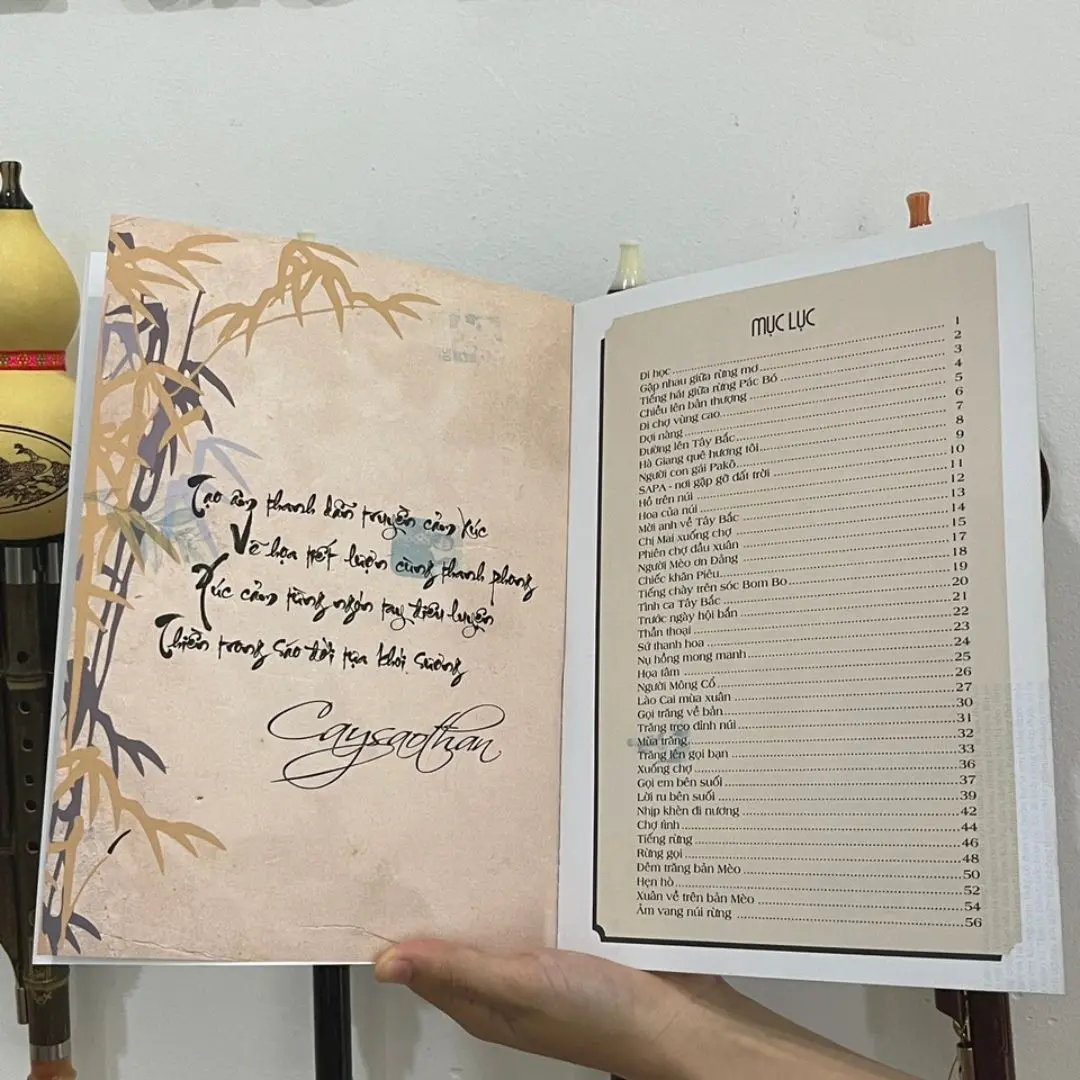 Tạo âm thanh dẫn truyện cảm xúc
Vẽ họa tiết lượn cùng thanh phong
Xúc cảm từng ngón tay điêu luyện
Thiền trong sáo đời tựa khói sương
Caysaothan
MỤC LỤC
Đi học 1
Gặp nhau giữa rừng mơ 2
Tiếng hát giữa rừng Pác Bó 3
Chiều lên bản thượng 4
Đi chợ vùng cao 5
Đợi nàng 6
Đường lên Tây Bắc 7
Hà Giang quê hương tôi 8
Người con gái Pakô 9
SAPA - nơi gặp gỡ đất trời 10
Hồ trên núi 11
Hoa của núi 12
Mời anh về Tây Bắc 13
Chị Mai xuống chợ 14
Phiên chợ đầu xuân 15
Người Mèo ơn Đảng 17
Chiếc khăn Piêu 18
Tiếng chày trên sóc Bom Bo 19
Tình ca Tây Bắc 20
Trước ngày hội bắn 21
Thần thoại 22
Sứ thanh hoa 23
Nụ hồng mong manh 24
Họa tâm 25
Người Mông Cổ 26
Lào Cai mùa xuân 27
Gọi trăng về bản 30
Trăng treo đỉnh núi 31
Mùa trăng 32
Trăng lên gọi bạn 33
Xuống chợ 36
Gọi em bên suối 37
Lời ru bên suối 39
Nhịp khèn đi nương 42
Chợ tình 44
Tiếng rừng 46
Rừng gọi 48
Đêm trăng bản Mèo 50
Hẹn hò 52
Xuân về trên bản Mèo 54
Âm vang núi rừng 56